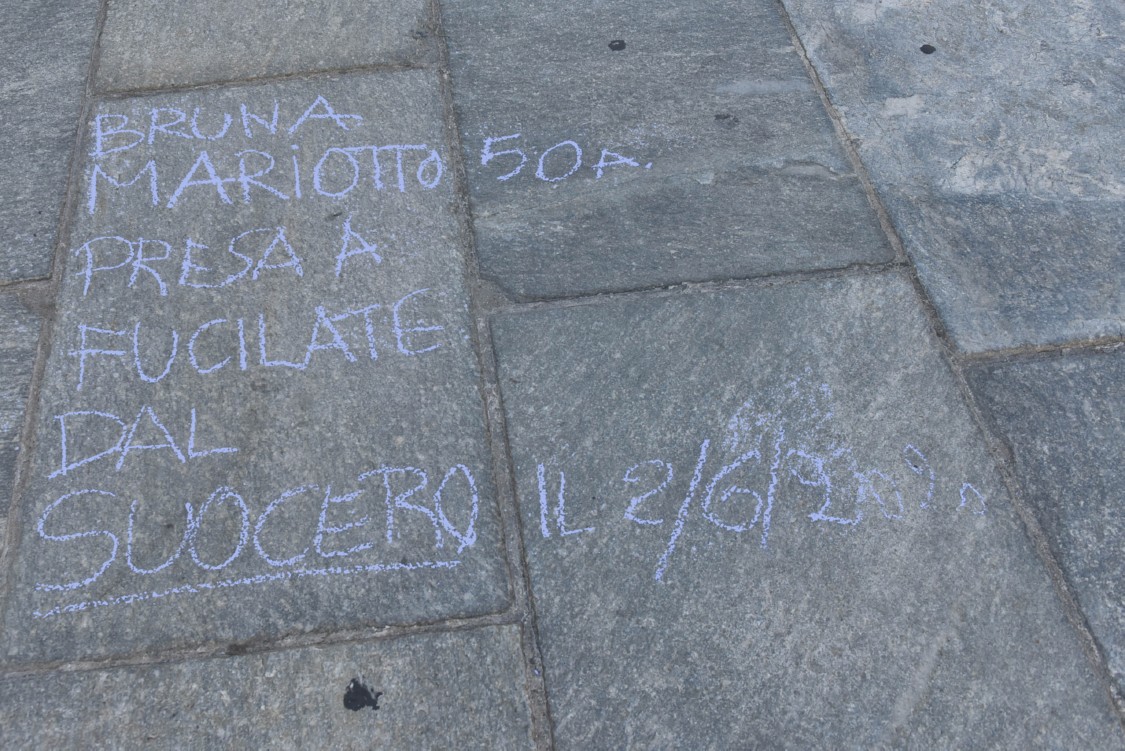 BRUNA
MARIOTTO 50 A.
PRESA A
FUCILATE
DAL
SUOCERO IL 2/6/